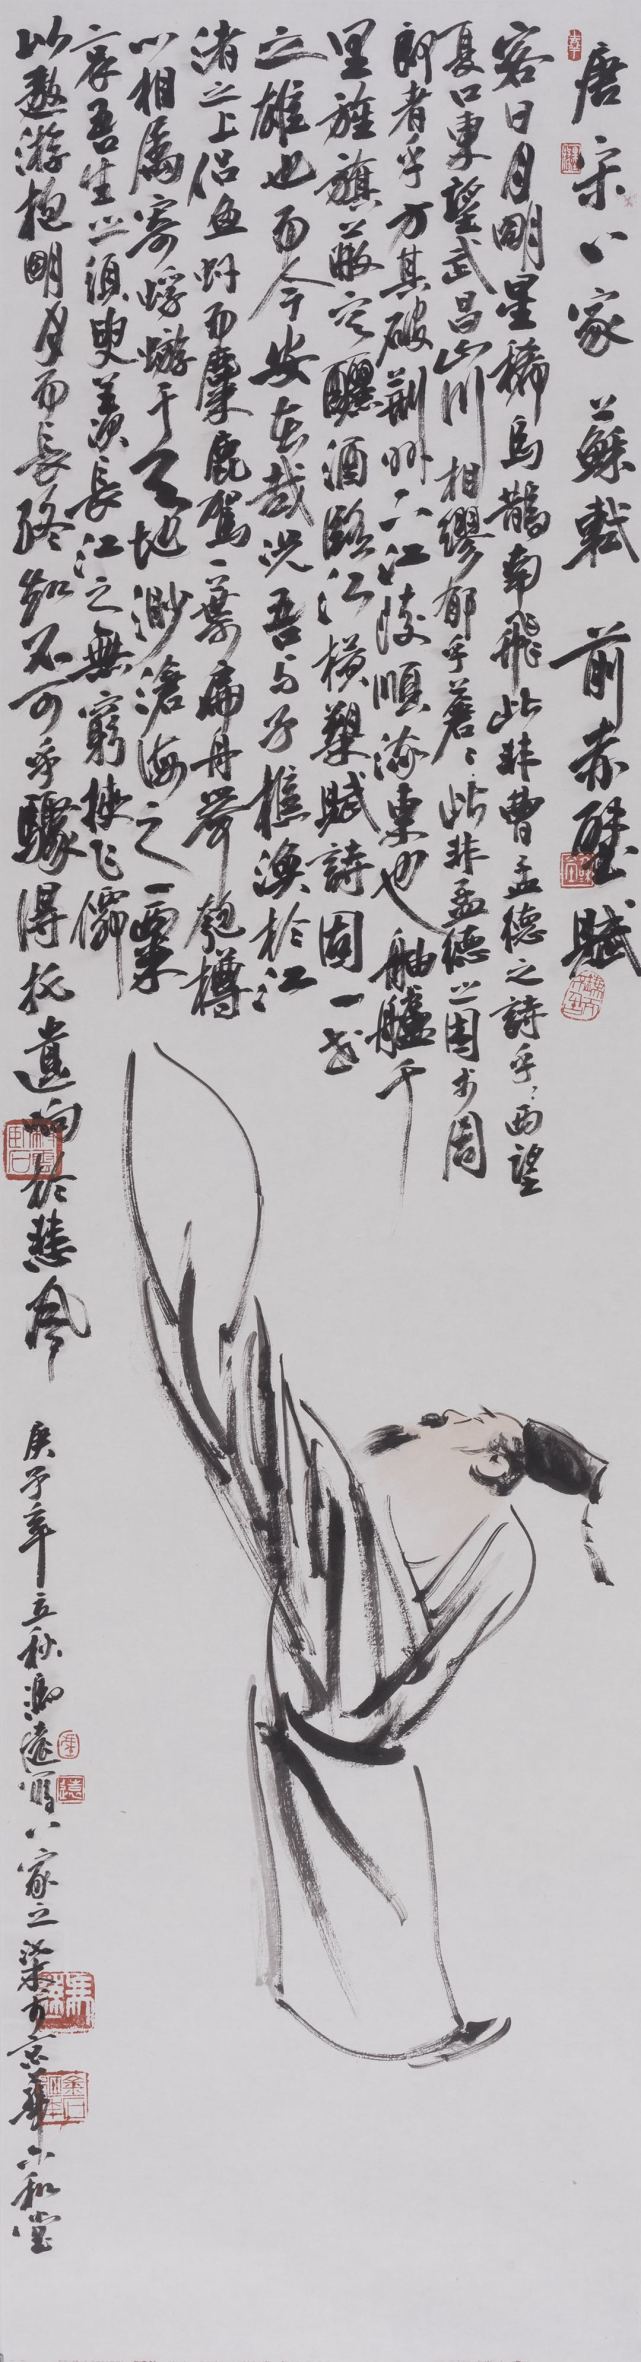 唐宋八家 之蘇軾 前赤壁賦
客曰月明星稀烏鵲南飛此非曹孟德之詩乎西望
夏口東望武昌山川相繆郁乎蒼〻此非孟德之困於周
郎者乎方其破荊州下江陵順流東也舳艫千
里旌旗蔽空釃酒臨江橫槊賦詩固一世
之雄也而今安在哉況吾与子樵漁於江
渚之上侣魚虾而麋鹿駕一葉扁舟舉匏樽
以相屬寄蜉蝣于天地渺滄海之一粟
哀吾生之須臾羨長江之無窮挾飞僊
以遨游抱明月而長終知不可乎驟得托遺响於悲風
庚子年立秋馮遠寫八家之柒於京華小和堂